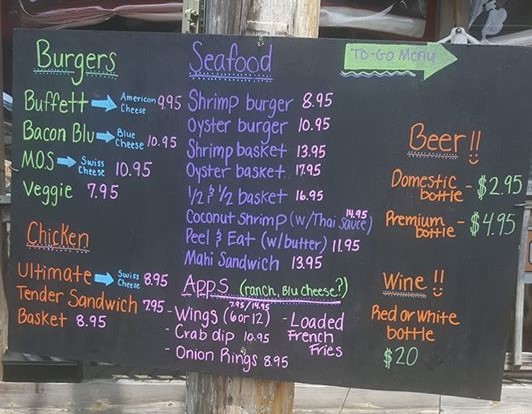 Burgers
Buffett American Cheese 9.95
Bacon Blu Blue Cheese 10.95
M.O.S Swiss Cheese 10.95
Veggie 7.95
Chicken
Ultimate Swiss Cheese 8.95
Tender Sandwich 7.95
Basket 8.95
Seafood
Shrimp burger 8.95
Oyster burger 10.95
Shrimp basket 13.95
Oyster basket 17.95
1/2 & 1/2 basket 16.95
Coconut Shrimp (w/Thai Sauce) 14.95
Peel & Eat (w/butter) 11.95
Mahi Sandwich 13.95
Apps (ranch, Blu cheese?)
- Wings (6 or 12) 7.95/14.95
- Crab dip 10.95
- Onion Rings 8.95
- Loaded
French
Fries
To-Go Menu
Beer!!
Domestic bottle - $2.95
Premium bottle - $4.95
Wine!!
Red or white
bottle
$20